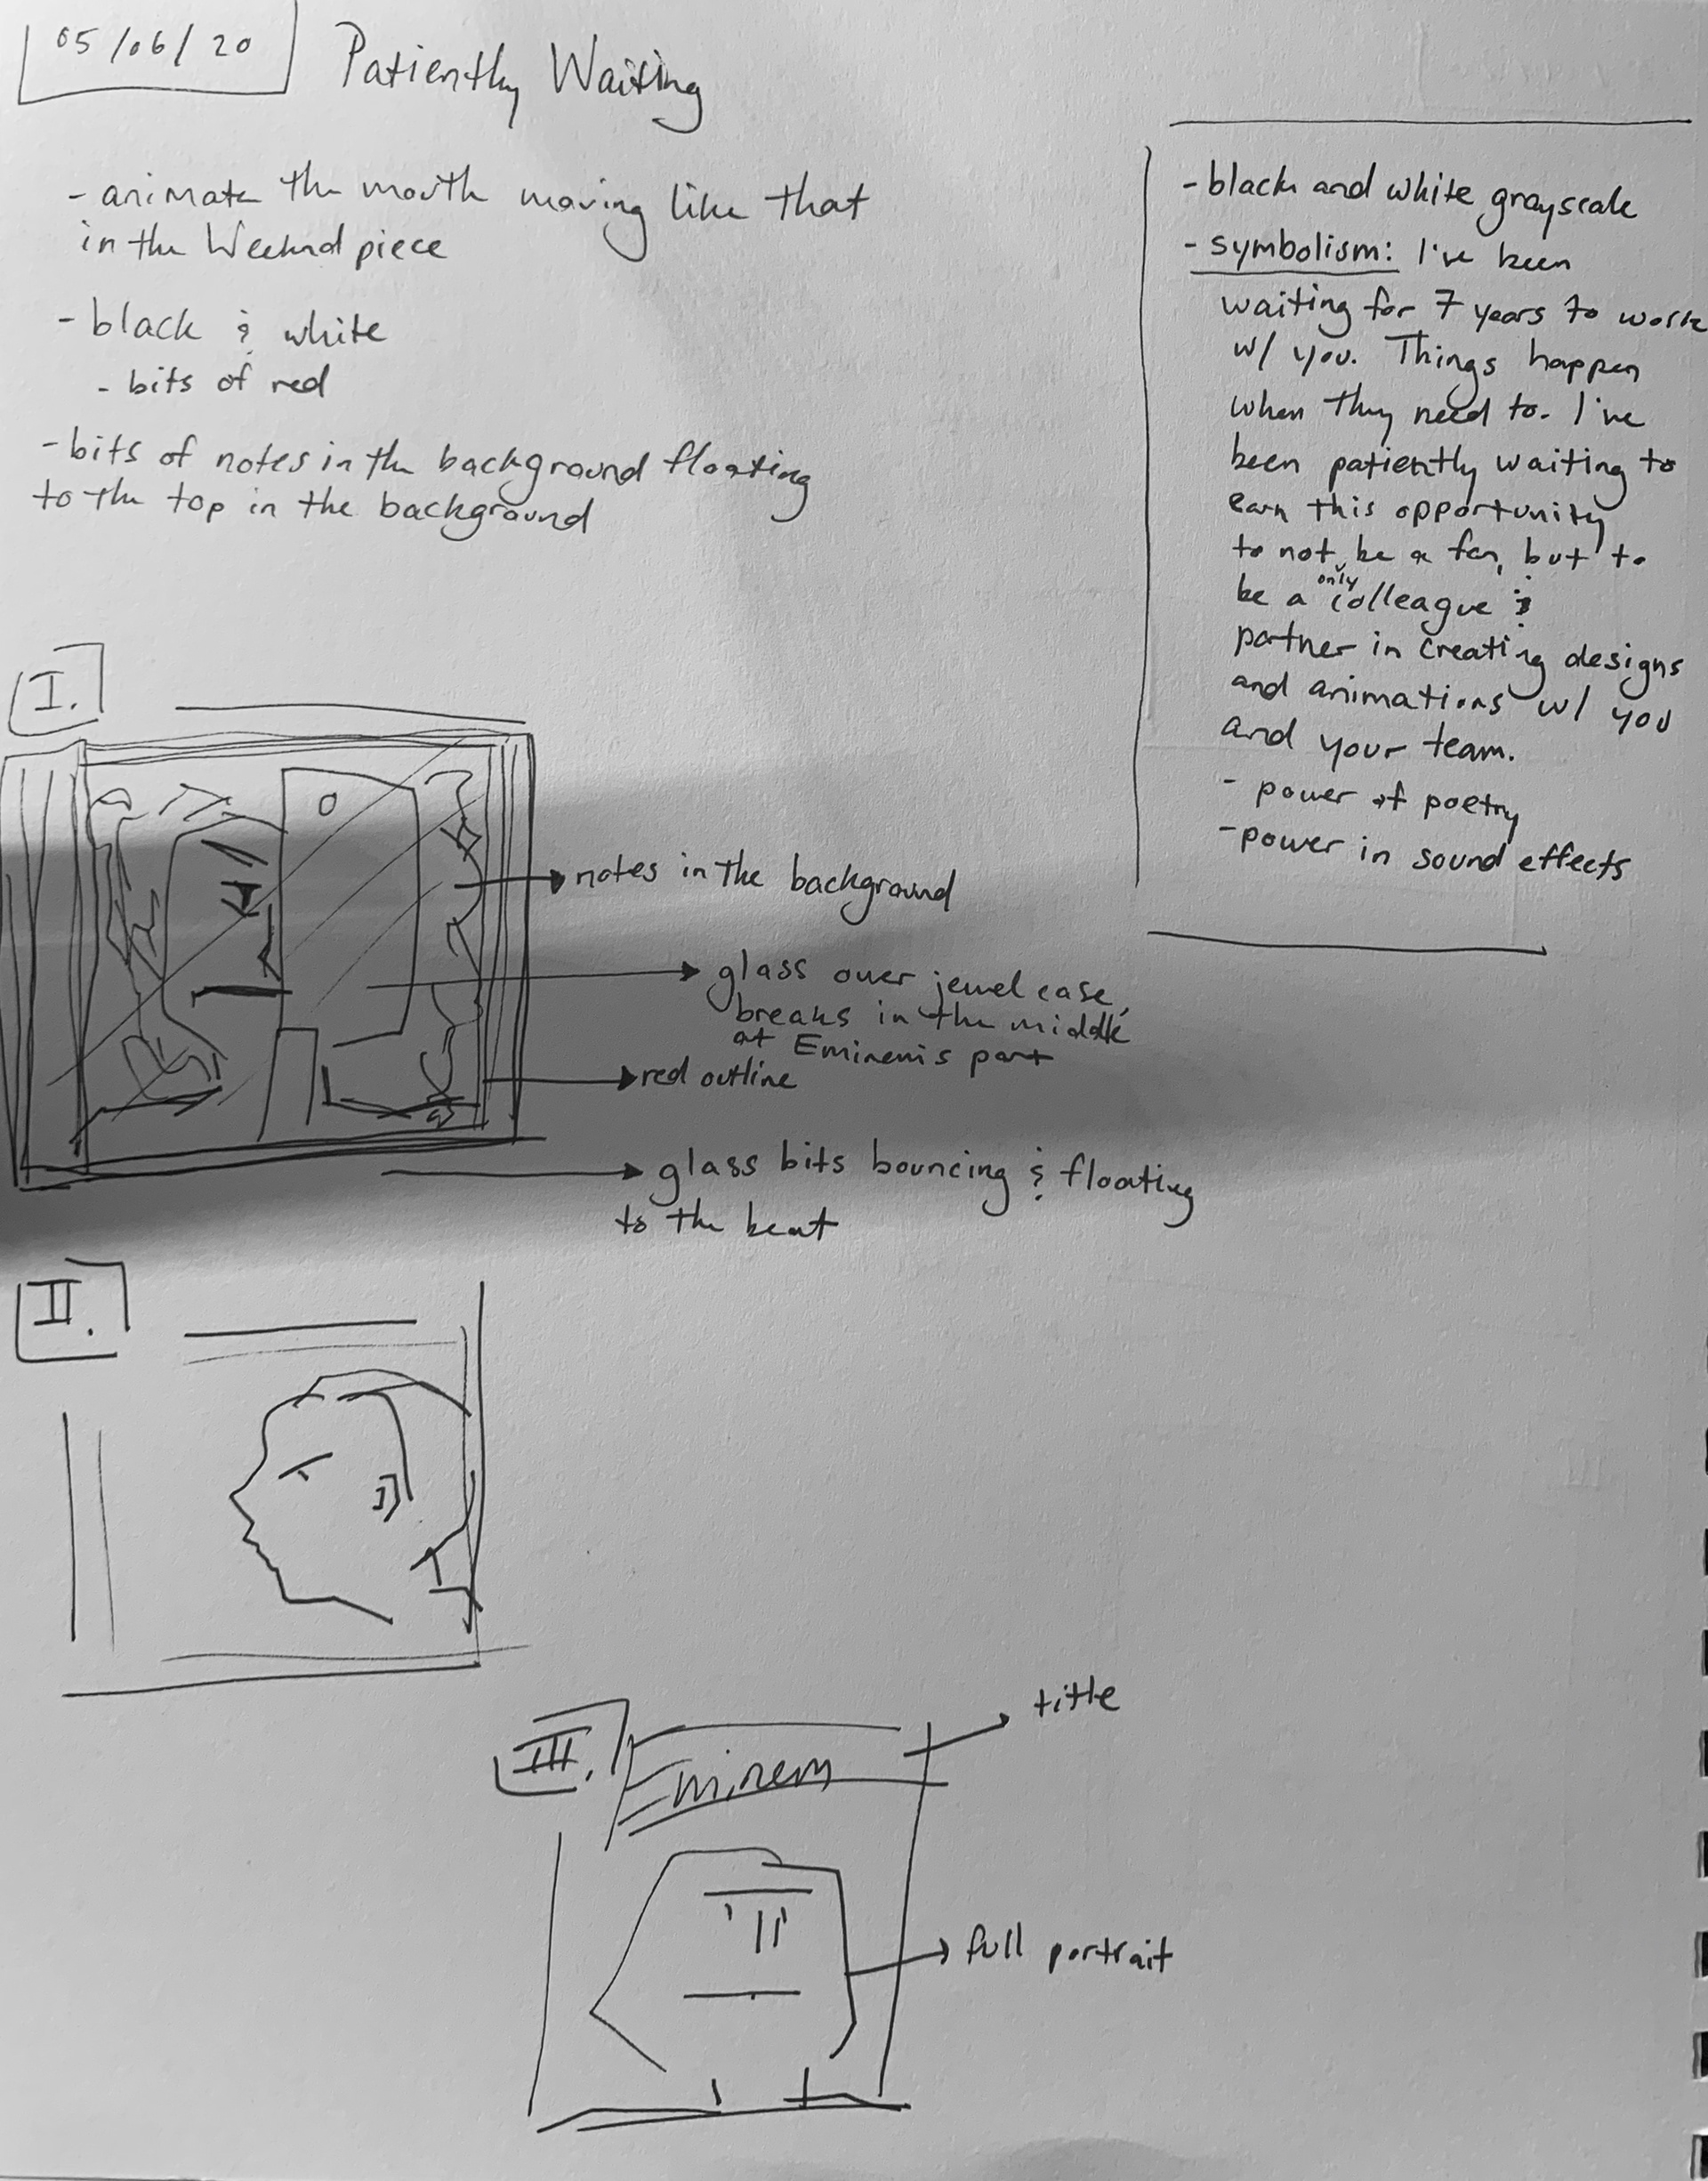 05/06/20
Patiently Waiting
- animate the mouth moving like that
in the Weeknd piece
- black & white
- bits of red
- bits of notes in the background floating
to the top in the background
- black and white grayscale
- symbolism: I've been
waiting for 7 years to work
w/ you. Things happen
when they need to. I've
been patiently waiting to
earn this opportunity
to not only be a fan, but to
be a colleague &
partner in creating designs
and animations w/ you
and your team.
- power of poetry
- power in sound effects
I.
notes in the background
glass over jewel case,
breaks in the middle
at Eminem's part
red outline
glass bits bouncing & floating
to the beat
II.
III.
Eminem
title
full portrait